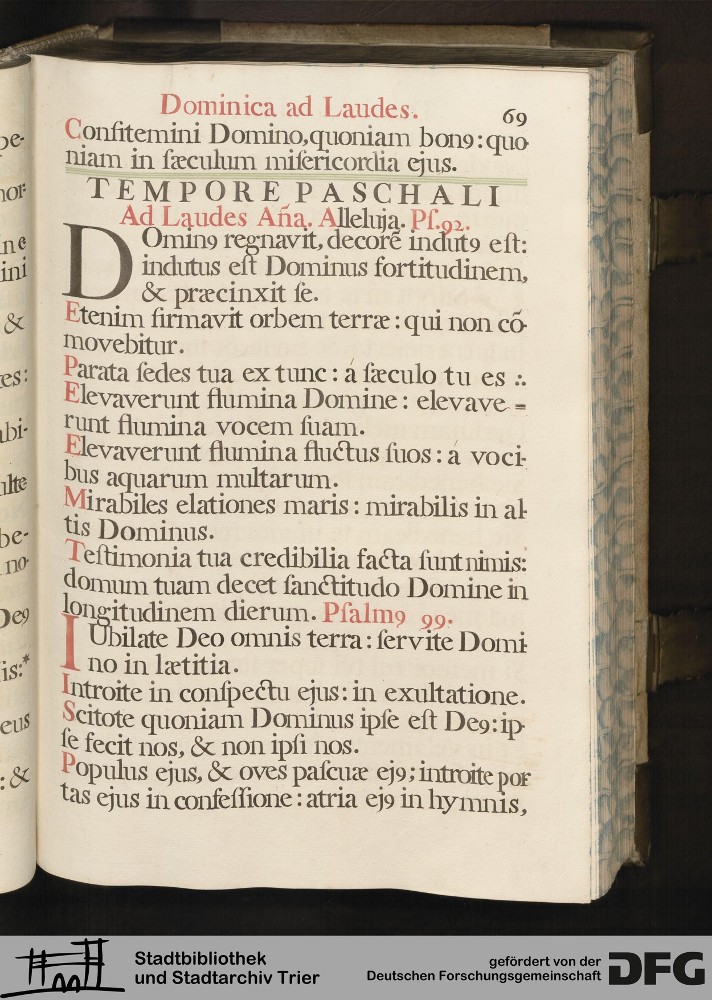 be-
nor-
ine
ini
&
tes:
abi-
ulte
be-
no-
De9
is:*
eus
: &
Dominica ad Laudes.
69
Confitemini Domino,quoniam bon9: quo-
niam in ſæculum miſericordia ejus.
TEMPORE PASCHALI
Ad Laudes Añ̃a. Alleluja. Pſ.92.
DOmin9 regnavit, decorẽ indut9 eſt:
indutus eſt Dominus fortitudinem,
& præcinxit ſe.
Etenim firmavit orbem terræ: qui non cõ-
movebitur.
Parata ſedes tua ex tunc: á ſæculo tu es ∴
Elevaverunt flumina Domine: elevave =
runt flumina vocem ſuam.
Elevaverunt flumina fluctus ſuos: á voci-
bus aquarum multarum.
Mirabiles elationes maris: mirabilis in al-
tis Dominus.
Teſtimonia tua credibilia facta ſunt nimis:
domum tuam decet ſanctitudo Domine in
longitudinem dierum. Pſalm9 99.
IUbilate Deo omnis terra: ſervite Domi-
no in lætitia.
Introite in conſpectu ejus: in exultatione.
Scitote quoniam Dominus ipſe eſt De9: ip-
ſe fecit nos, & non ipſi nos.
Populus ejus, & oves paſcuæ ej9; introite por
tas ejus in confeſſione: atria ej9 in hymnis,
Stadtbibliothek
und Stadtarchiv Trier
gefördert von der
Deutschen Forschungsgemeinschaft
DFG